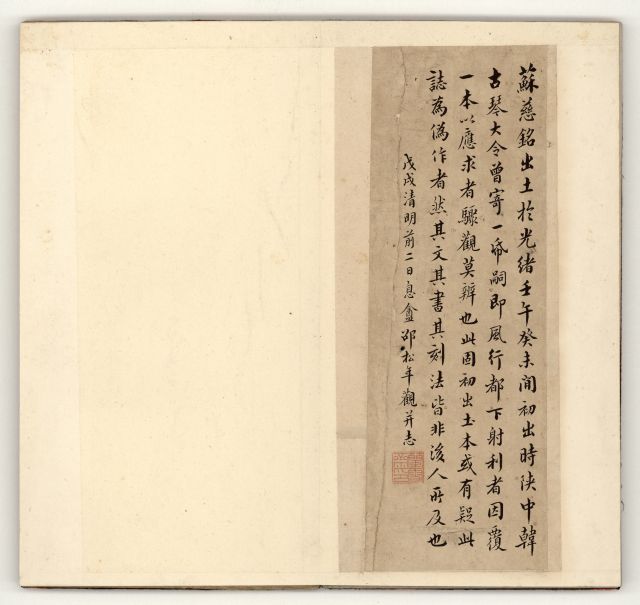 蘇慈銘出土於光緒壬午癸未間初出時陝中韓
古琴大令曾寄一帋嗣即風行都下射利者因覆
一本以應求者驟觀莫辨也此固初出土本或有疑此
誌為偽作者然其文其書其刻法皆非後人所及也
戊戌清明前二日息盦邵松年觀并志